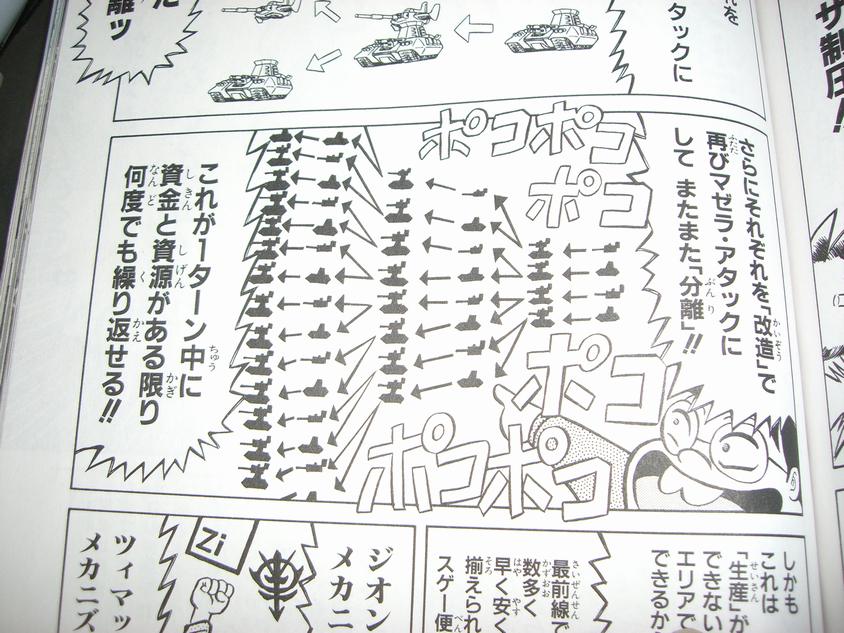 ザ制圧!!
れを
タックに
た
離ッ
さらにそれぞれを「改造」で
再びマゼラ・アタックに
して またまた「分離」!!
ポコポコ
ポコ
ポコ
ポコポコ
これが1ターン中に
資金と資源がある限り
何度でも繰り返せる!!
しかも
これは
「生産」が
できない
エリアで
できるか
最前線で
数多く
早く安く
揃えられ
スゲー便
ジオン
メカニ
Zi
ツィマッ
メカニズ